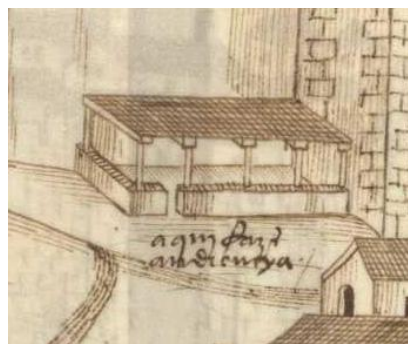 aqui fazẽ
audiencya.